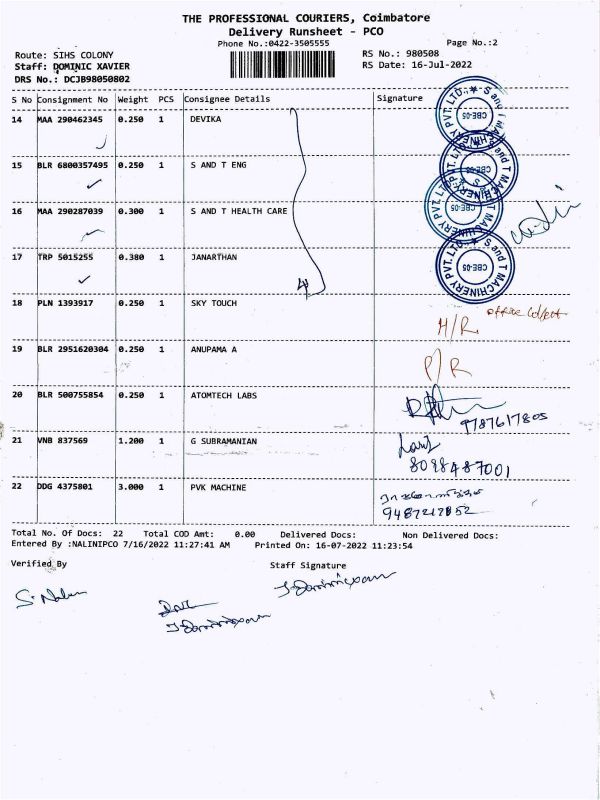 THE PROFESSIONAL COURIERS, Coimbatore
Delivery Runsheet - PCO
Phone No.:0422-3505555
Page No.:2
Route: SIHS COLONY
RS No.: 980508
Staff: DOMINIC XAVIER
RS Date: 16-Jul-2022
DRS No.: DCJB98050802
S No Consignment No Weight PCS Consignee Details Signature
14 MAA 290462345 0.250 1 DEVIKA
15 BLR 6800357495 0.250 1 S AND T ENG
16 MAA 290287039 0.300 1 S AND T HEALTH CARE
17 TRP 5015255 0.380 1 JANARTHAN
4
S and T MACHINERY PVT. LTD. ★
CBE-05
S and T MACHINERY PVT. LTD. ★
CBE-05
S and T MACHINERY PVT. LTD. ★
CBE-05
S and T MACHINERY PVT. LTD. ★
CBE-05
18 PLN 1393917 0.250 1 SKY TOUCH
H/R office collect
19 BLR 2951620304 0.250 1 ANUPAMA A
P/R
20 BLR 500755854 0.250 1 ATOMTECH LABS
9787617805
21 VNB 837569 1.200 1 G SUBRAMANIAN
8098487001
22 DDG 4375801 3.000 1 PVK MACHINE
9487217852
Total No. Of Docs: 22 Total COD Amt: 0.00 Delivered Docs: Non Delivered Docs:
Entered By :NALINIPCO 7/16/2022 11:27:41 AM Printed On: 16-07-2022 11:23:54
Verified By Staff Signature